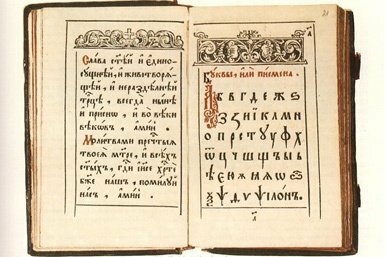 Слава ст҃ѣй и҆ є҆дино
сꙋ́щнѣй, и҆ животворѧ
щей, и҆ нераздѣ́лнѣй
трⷪ҇цѣ, всегда̀ нн҃ѣ
и҆ при́снѡ, и҆ во вѣ́ки
вѣкѡ́въ, а҆ми́нь
Моли́твами прест҃ы́ѧ
твоеѧ̀ мт҃ре, и҆ всѣ́хъ
ст҃ы́хъ, гдⷭ҇и і҆и҃се хрⷭ҇тѐ
бж҃е на́шъ, поми́лꙋй
на́съ, а҆ми́нь
Бꙋквы, и҆лѝ пи́смена.
А Б в г д е ж ѕ
З з и і к л м н
о п р с т ꙋ у ф х
ѿ ц ч ш щ ъ ы ь
ѣ ю ѧ ѡ
ѱ ѵ ѱило́нъ.